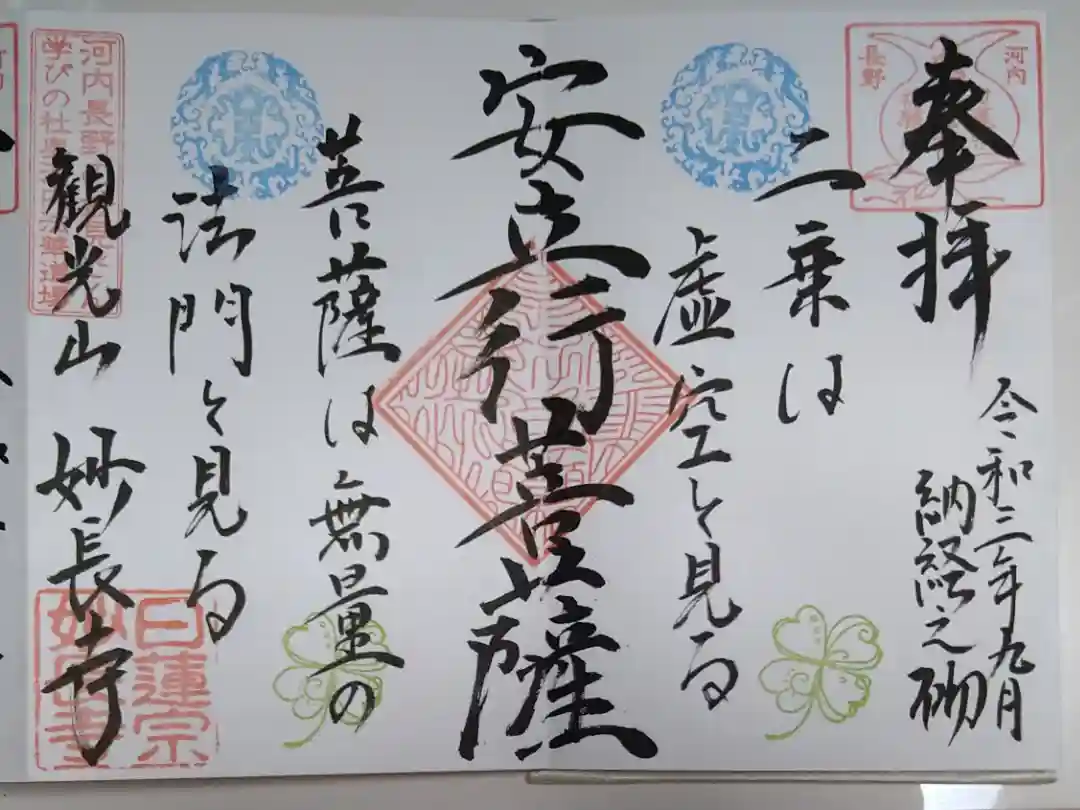 奉拝
河内
長野
令和三年九月
納経之砌
二乗は
虚空と見る
安立行菩薩
菩薩は無量の
法門と見る
観光山 妙長寺
河内長野
学びの社
日蓮宗
妙長寺